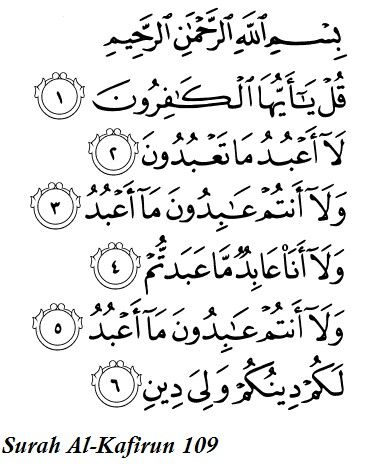 بِسْمِ ٱللَّهِ ٱلرَّحْمَٰنِ ٱلرَّحِيمِ
قُلْ يَٰٓأَيُّهَا ٱلْكَٰفِرُونَ ١
لَآ أَعْبُدُ مَا تَعْبُدُونَ ٢
وَلَآ أَنتُمْ عَٰبِدُونَ مَآ أَعْبُدُ ٣
وَلَآ أَنَا۠ عَابِدٌ مَّا عَبَدتُّمْ ٤
وَلَآ أَنتُمْ عَٰبِدُونَ مَآ أَعْبُدُ ٥
لَكُمْ دِينُكُمْ وَلِىَ دِينِ ٦
Surah Al-Kafirun 109